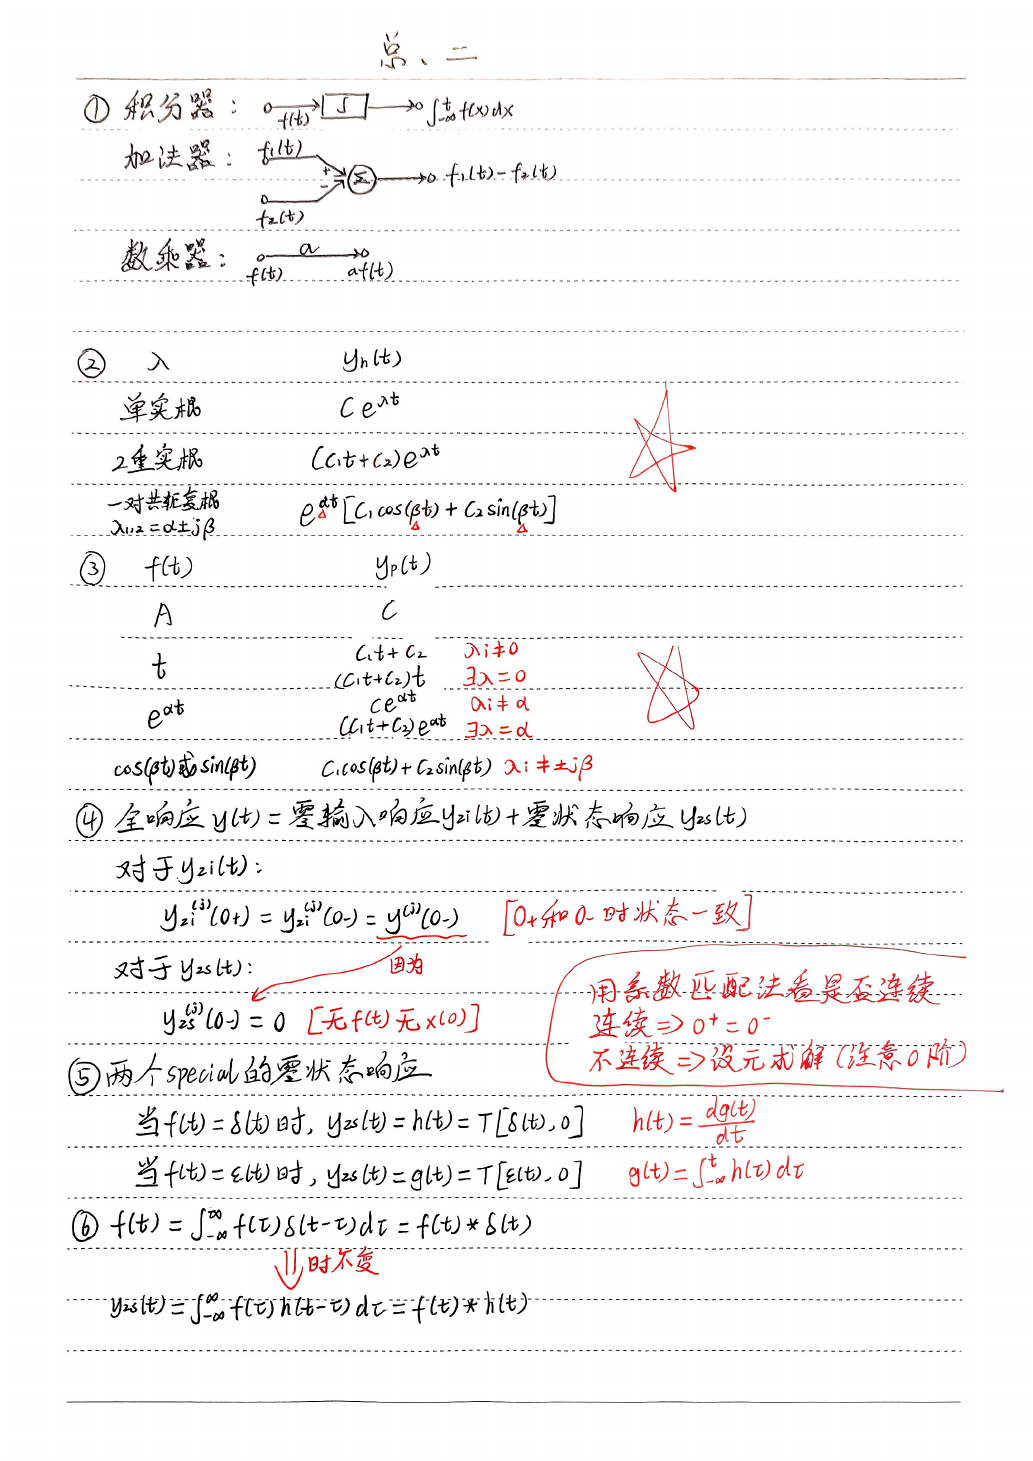 总、二
① 积分器: f(t) ∫ ∫_{-∞}^{t} f(x)dx
加法器: f₁(t) + - Σ f₁(t)-f₂(t)
f₂(t)
数乘器: f(t) a af(t)
② λ yh(t)
单实根 Ce^{λt}
2重实根 (C₁t+C₂)e^{λt}
一对共轭复根
λ₁,₂=α±jβ e^{αt}[C₁cos(βt)+C₂sin(βt)]
③ f(t) yp(t)
A C
t C₁t+C₂ λi≠0
(C₁t+C₂)t ∃λ=0
e^{αt} Ce^{αt} λi≠α
(C₁t+C₂)e^{αt} ∃λ=α
cos(βt)或sin(βt) C₁cos(βt)+C₂sin(βt) λi≠±jβ
④ 全响应y(t)=零输入响应yzi(t)+零状态响应yzs(t)
对于yzi(t):
yzi^{(j)}(0+)=yzi^{(j)}(0-)=y^{(j)}(0-) [0+和0-时状态一致]
对于yzs(t): 因为
yzs^{(j)}(0-)=0 [无f(t)无x(0)]
用系数匹配法看是否连续
连续⇒0⁺=0⁻
不连续⇒设元求解(注意0阶)
⑤ 两个special的零状态响应
当f(t)=δ(t)时, yzs(t)=h(t)=T[δ(t),0] h(t)=dg(t)/dt
当f(t)=ε(t)时, yzs(t)=g(t)=T[ε(t),0] g(t)=∫_{-∞}^{t}h(τ)dτ
⑥ f(t)=∫_{-∞}^{∞}f(τ)δ(t-τ)dτ=f(t)*δ(t)
⇓时不变
yzs(t)=∫_{-∞}^{∞}f(τ)h(t-τ)dτ=f(t)*h(t)